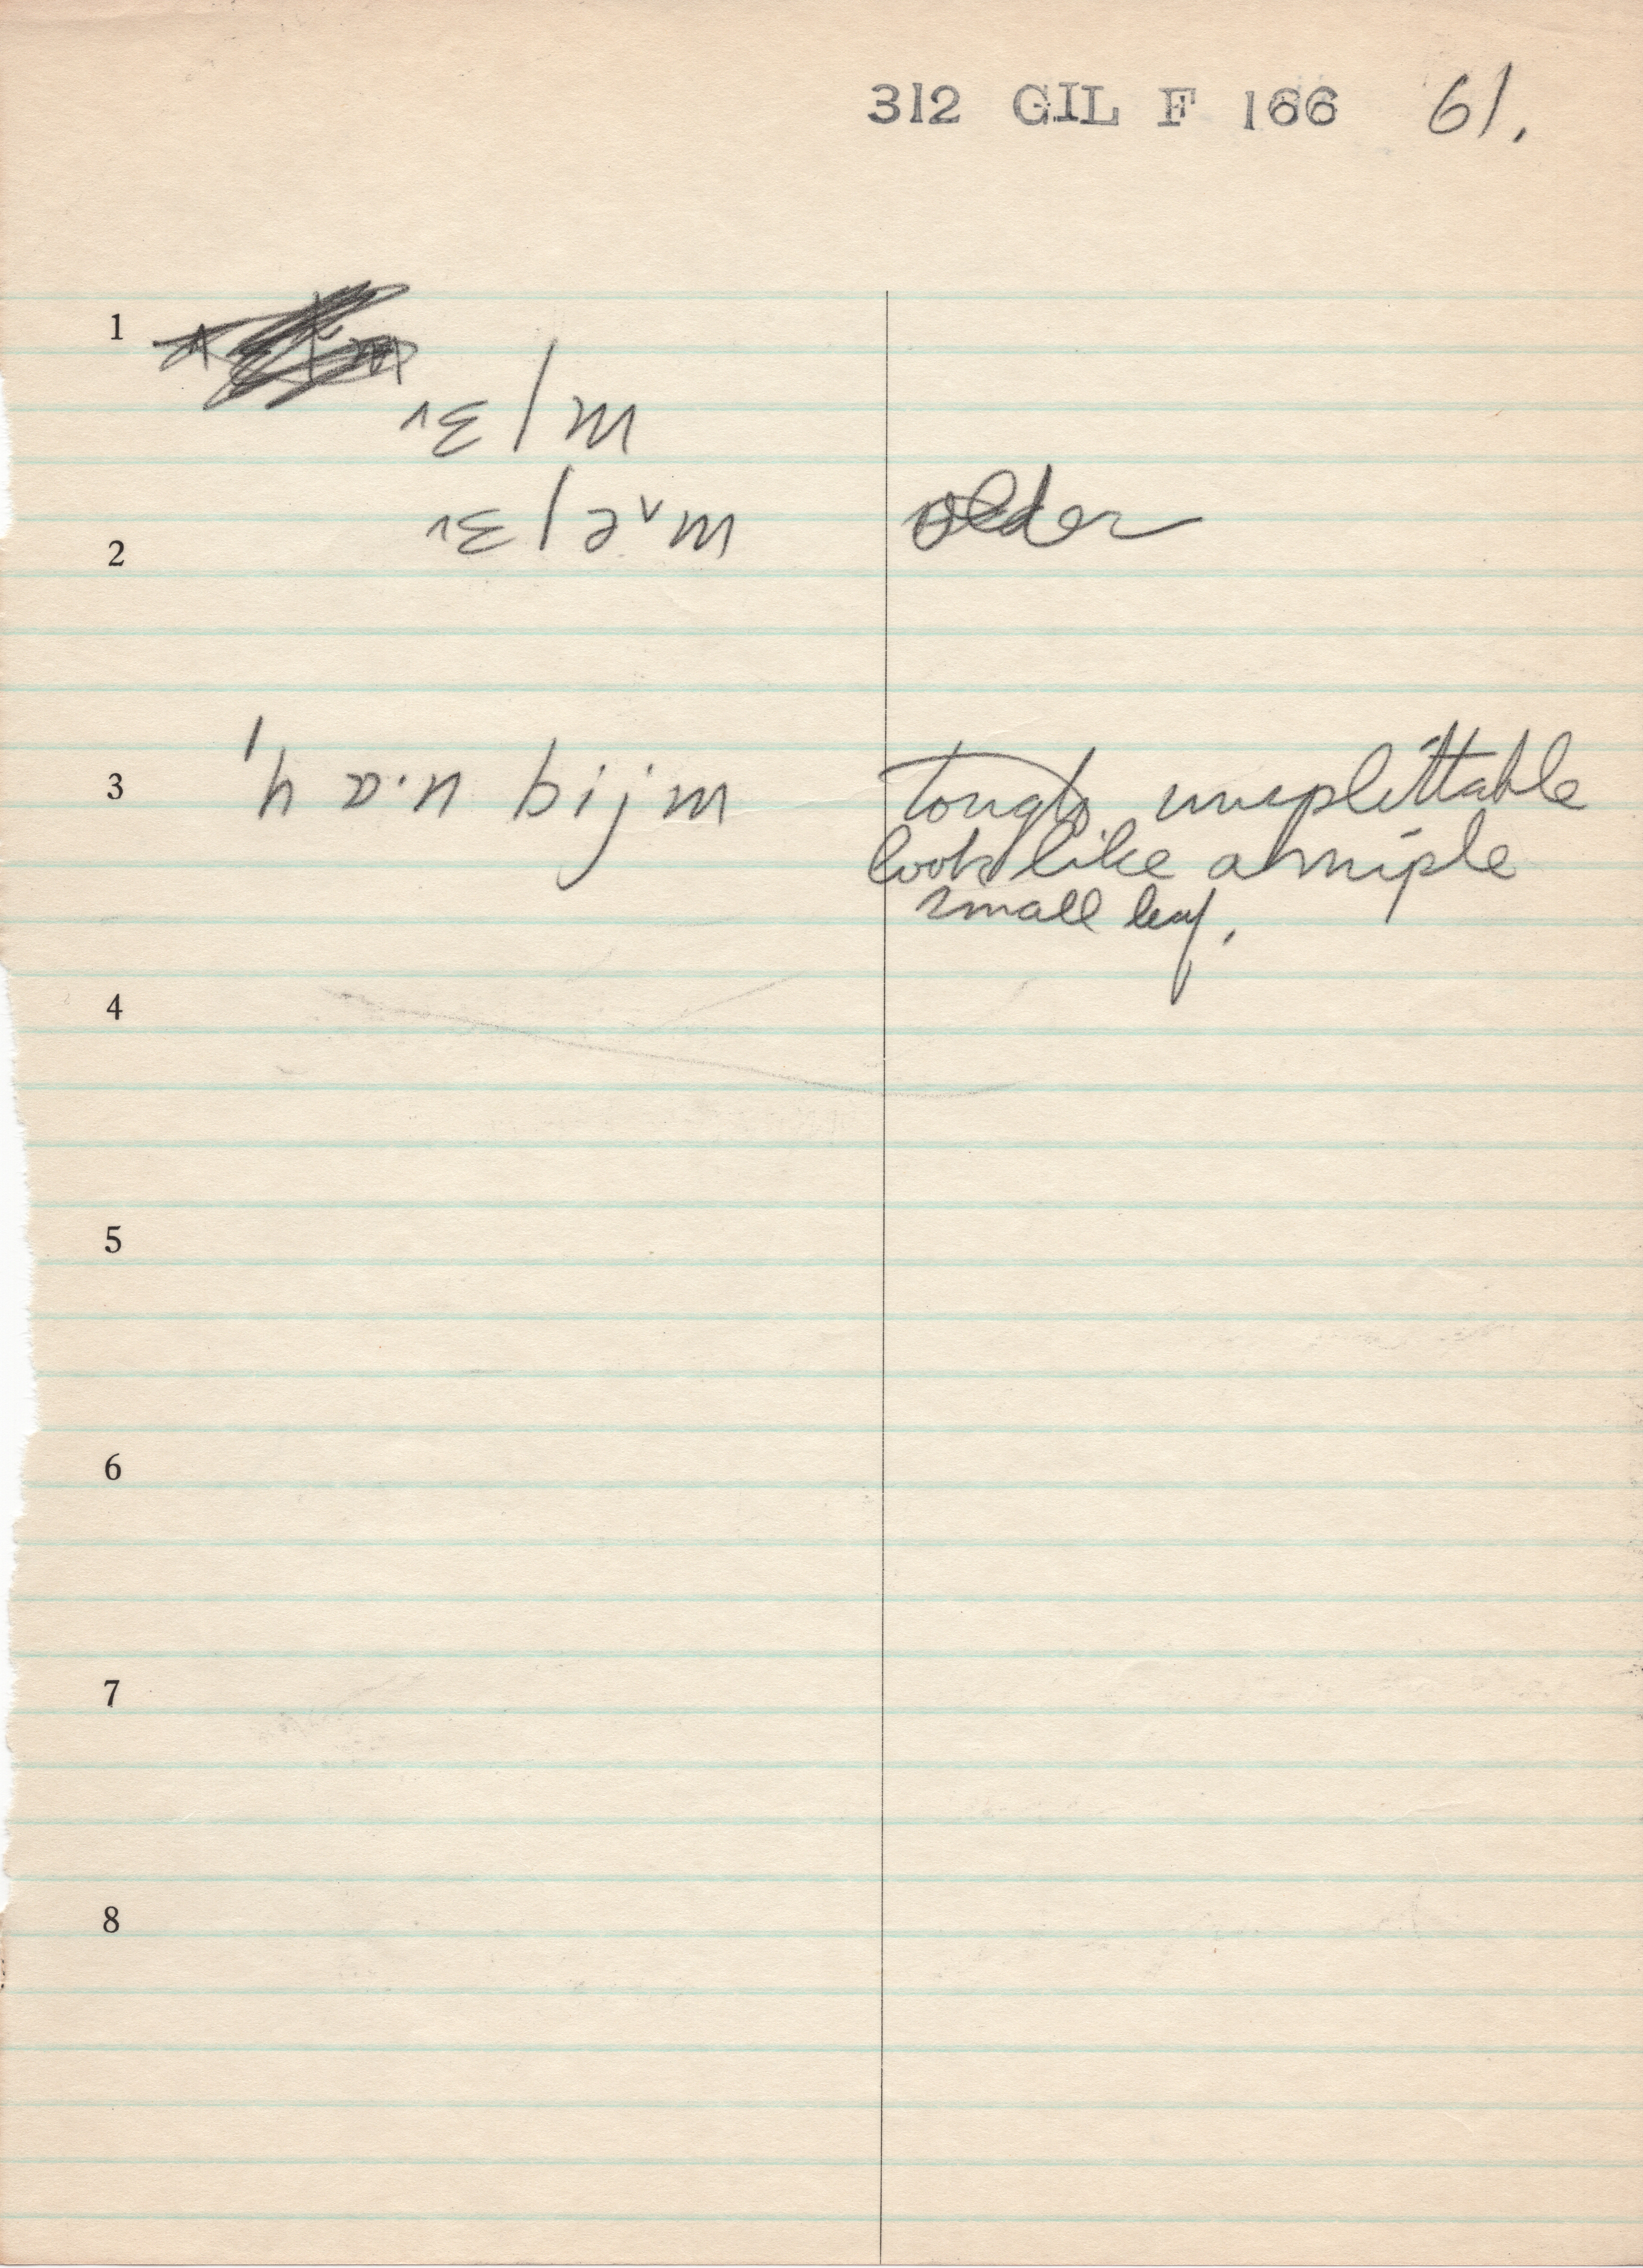 312 GIL F 166 61.
1
ɛ l m
2 ɛ l ə˅m older
3 'h ɒ·n bijm tough unsplittable
looks like a miple
small leaf.
4
5
6
7
8